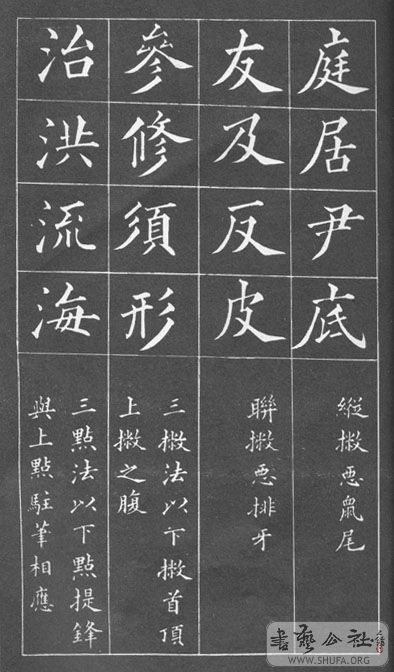 庭居尹底
縱撇惡鼠尾
友及反皮
聯撇惡排牙
參修須形
三撇法以下撇首頂
上撇之腹
治洪流海
三點法以下點提鋒
與上點駐筆相應
書藝公社
WWW.SHUFA.ORG